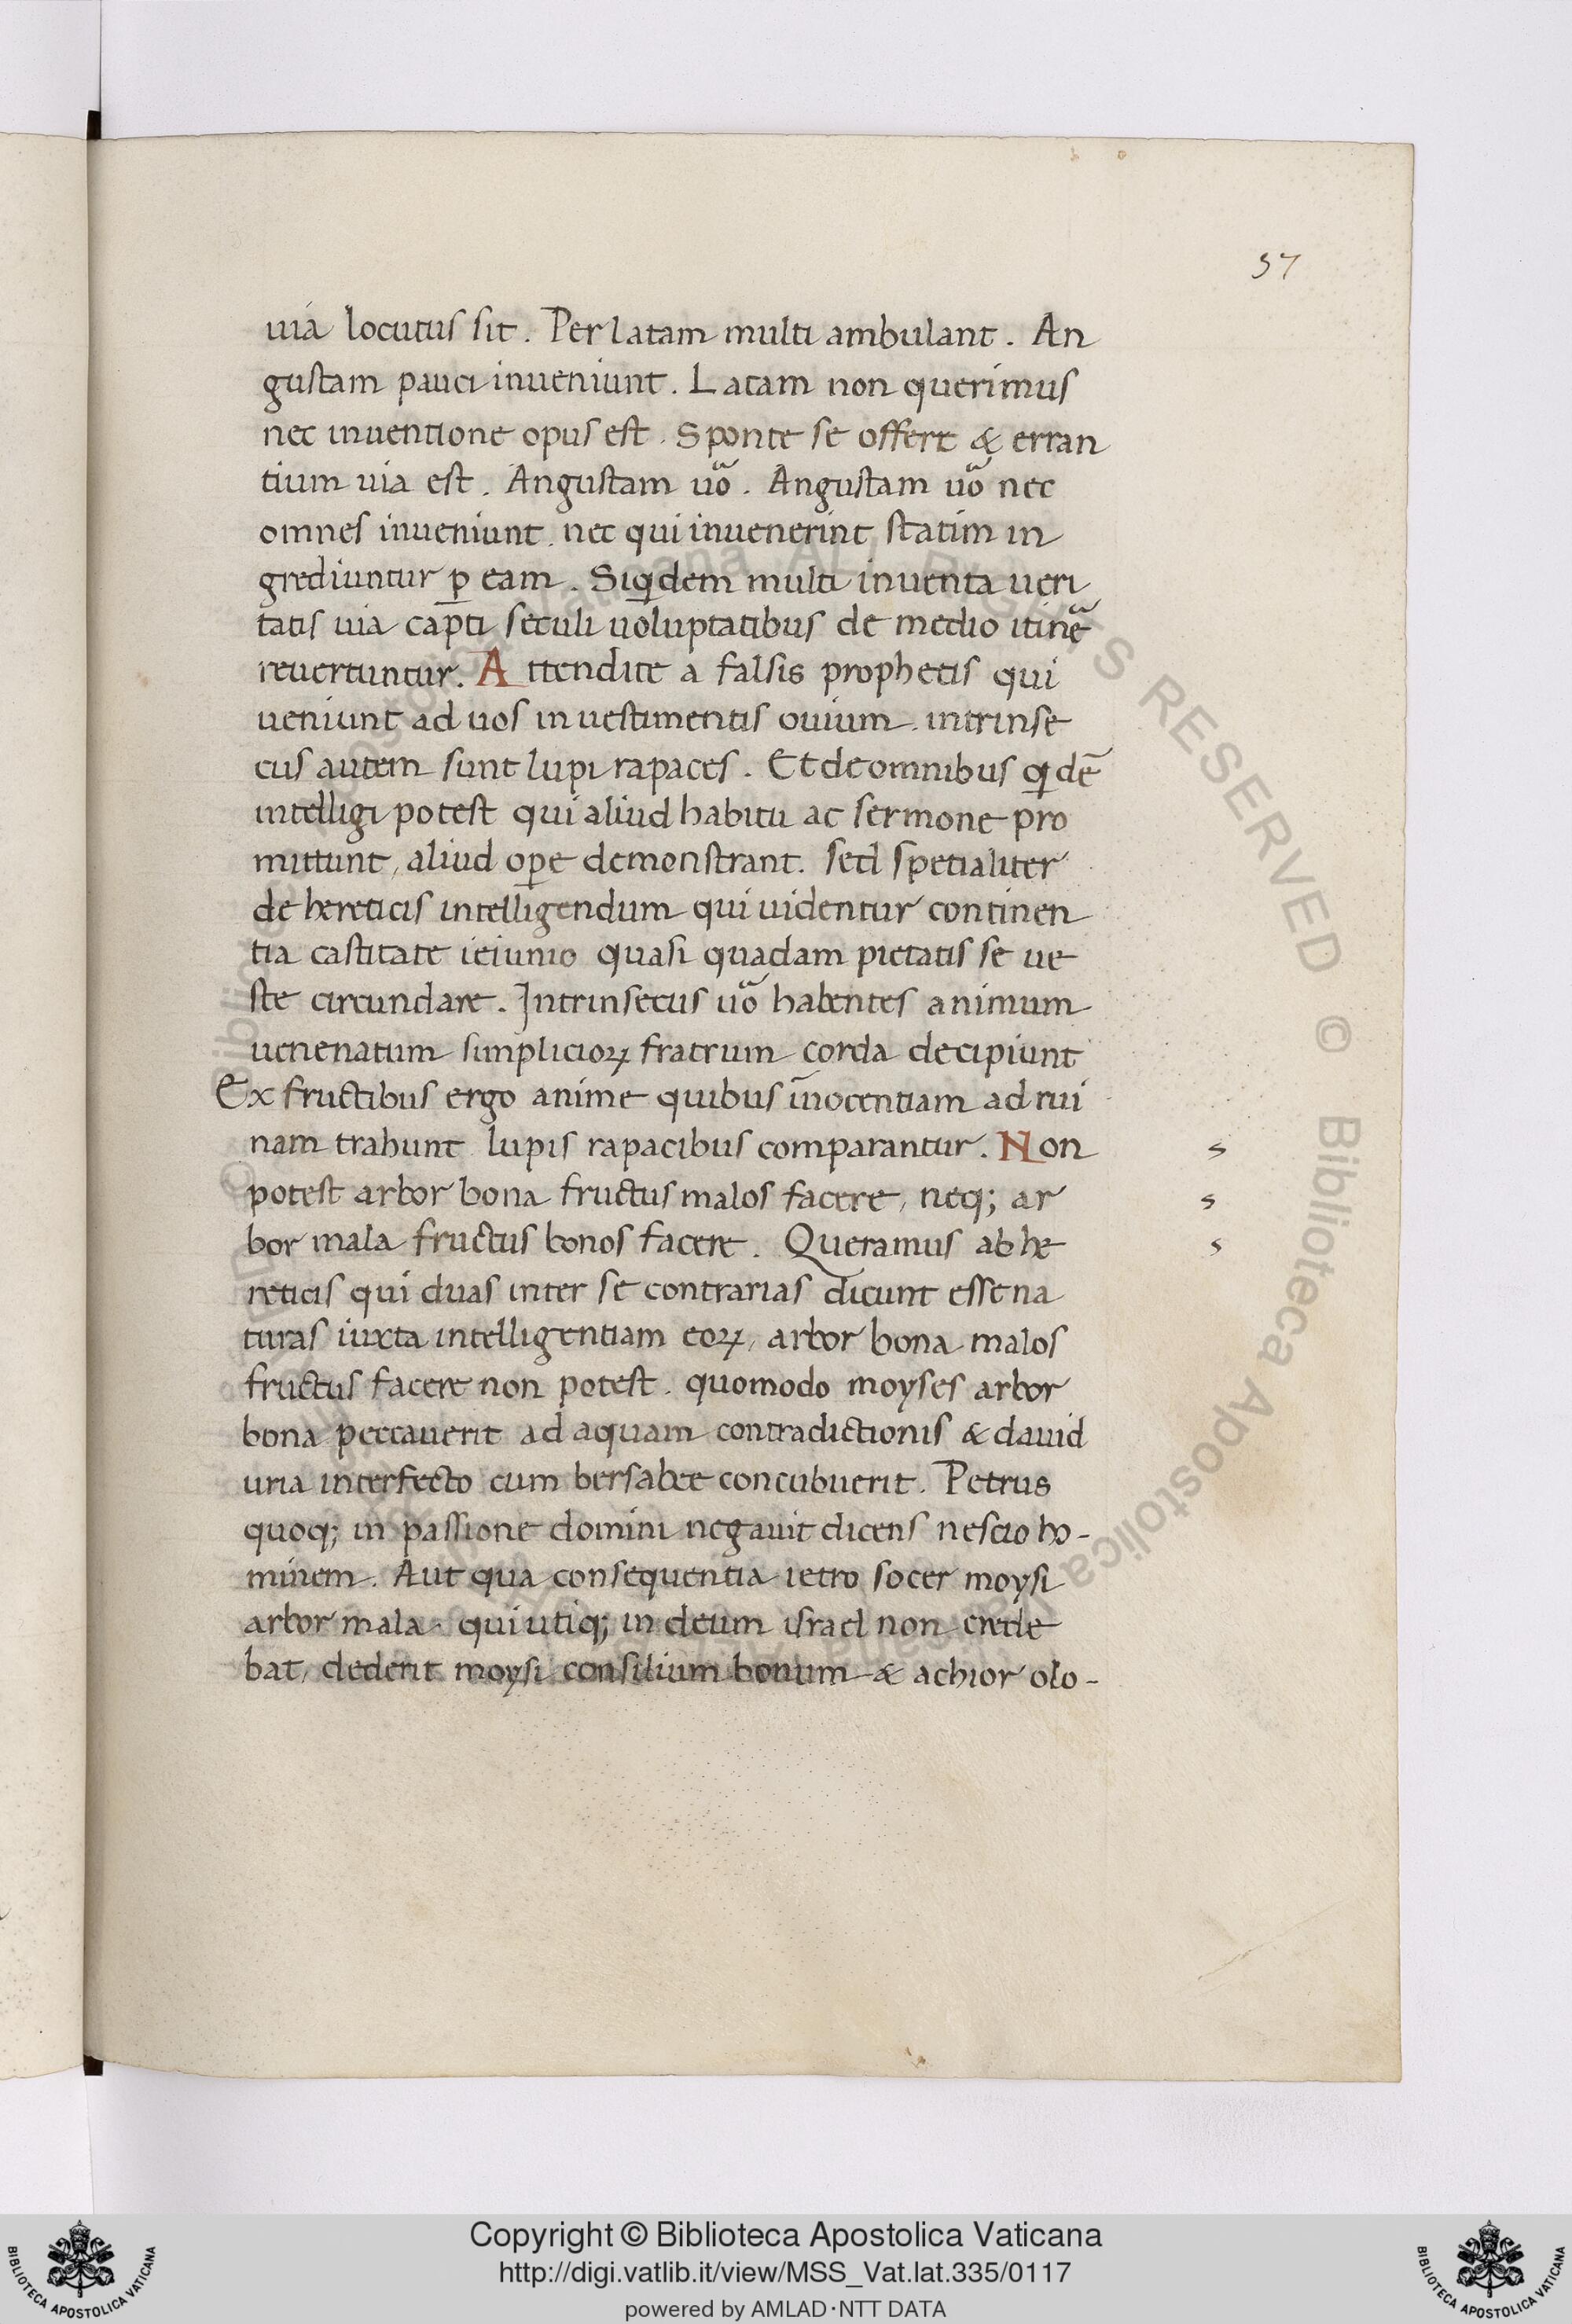 57
uia locutus sit. Per latam multi ambulant. An
gustam pauci inueniunt. Latam non querimus
nec inuentione opus est. Sponte se offert & erran
tium uia est. Angustam uõ. Angustam uõ nec
omnes inueniunt. nec qui inuenerint statim in
grediuntur ꝑ eam. Siqͥdem multi inuenta ueri
tatis uia cap̃ti seculi uoluptatibus de medio itinẽ
reuertuntur. Attendite a falsis prophetis qui
ueniunt ad uos in uestimentis ouium. intrinse
cus autem sunt lupi rapaces. Et de omnibus qͥdẽ
intelligi potest qui aliud habitu ac sermone pro
mittunt, aliud oꝑe demonstrant. sed spetialiter
de hereticis intelligendum qui uidentur continen
tia castitate ieiunio quasi quadam pietatis se ue
ste circundare. Intrinsecus uõ habentes animum
uenenatum simplicioꝝ fratrum corda decipiunt
Ex fructibus ergo anime quibus ĩnocentiam ad rui
nam trahunt lupis rapacibus comparantur. Non
potest arbor bona fructus malos facere, neq; ar
bor mala fructus bonos facere. Queramus ab he
reticis qui duas inter se contrarias dicunt esse na
turas iuxta intelligentiam eoꝝ, arbor bona malos
fructus facere non potest. quomodo moyses arbor
bona peccauerit ad aquam contradictionis & dauid
uria interfecto cum bersabee concubuerit. Petrus
quoq; in passione domini negauit dicens nescio ho-
minem. Aut qua consequentia ietro socer moysi
arbor mala. qui utiq; in deum israel non crede
bat, dederit moysi consilium bonum & achior olo-
s
s
s
© Biblioteca Apostolica Vaticana ALL RIGHTS RESERVED
Copyright © Biblioteca Apostolica Vaticana
http://digi.vatlib.it/view/MSS_Vat.lat.335/0117
powered by AMLAD·NTT DATA
BIBLIOTECA APOSTOLICA VATICANA
BIBLIOTECA APOSTOLICA VATICANA